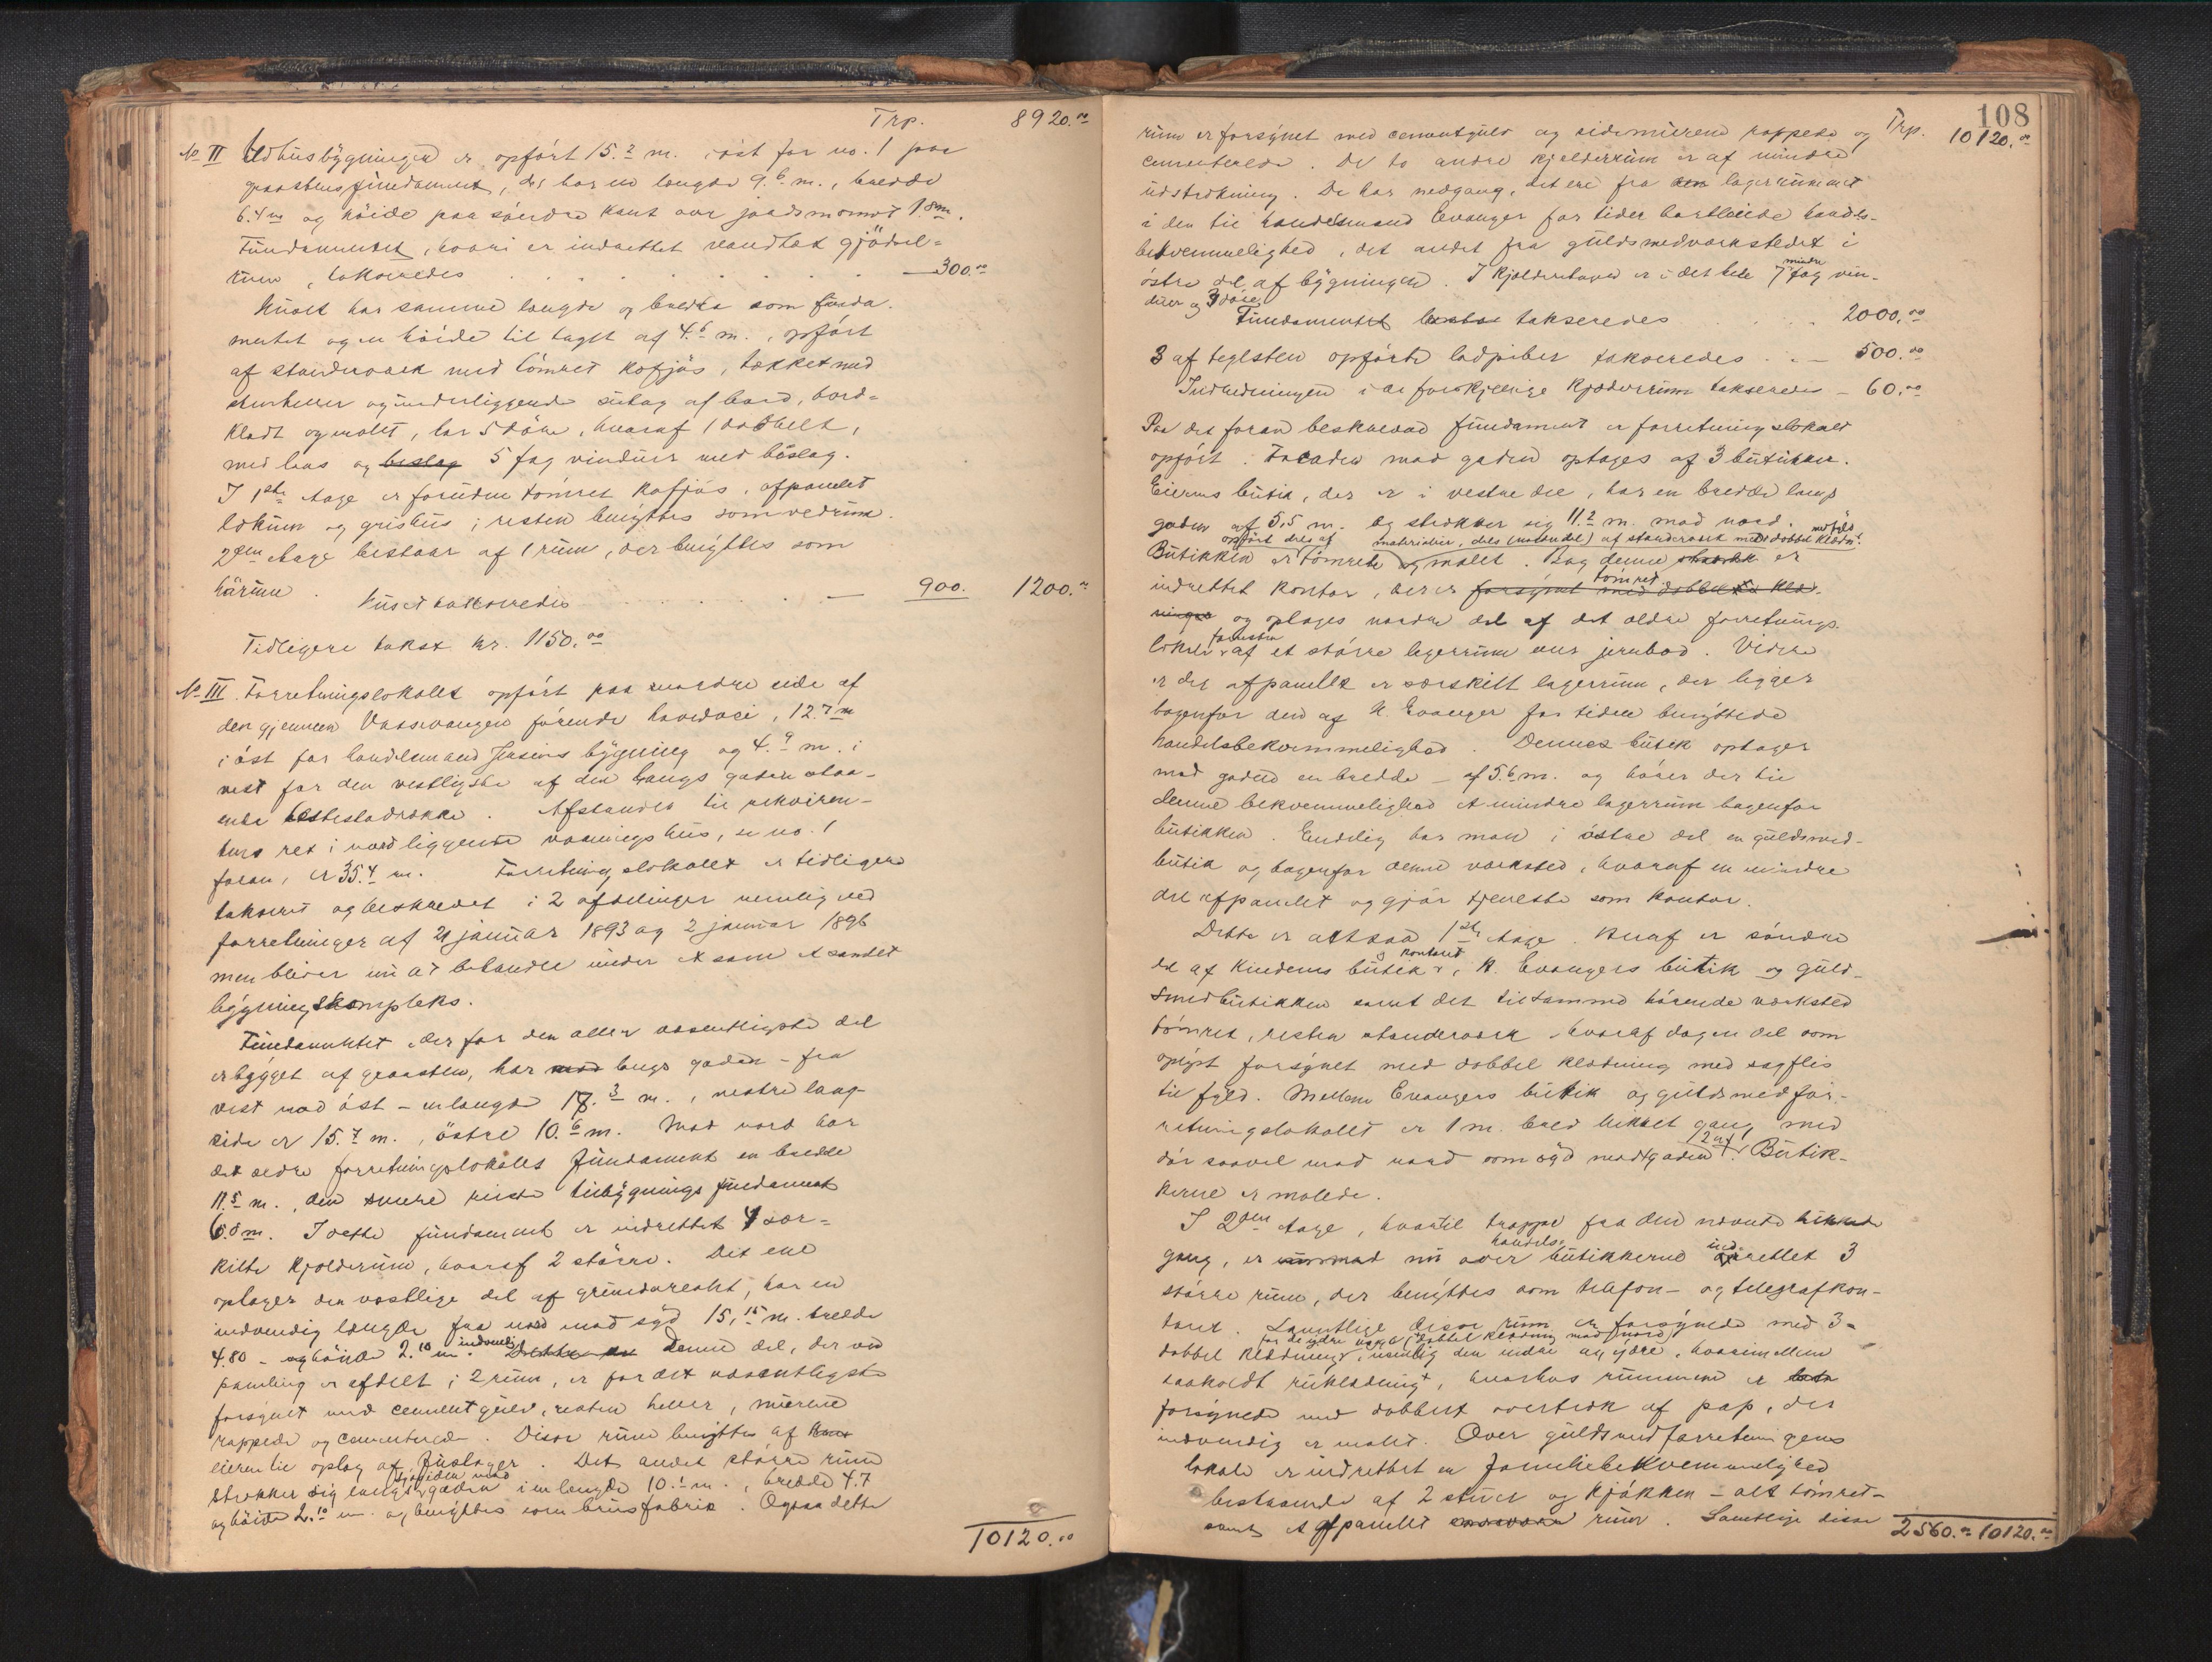 Trp. 8920.00
No II Udhusbygningen er opført 15.2 m. i øst for no. 1 paa
graastensfundament, der har en længde 9.6 m., bredde
6.4 m og høide paa søndre kant over jordsmonnet 1.8 m.
Fundamentet, hvori er indrettet vandtæt gjødsel-
rum, takseredes 300.00
Huset har samme længde og bredde som funda-
mentet og en høide til taget af 4.6 m., opført
af stenderværk med tømret kofjøs, tækket med
stenheller og underliggende sutag af bord, bord-
klædt og malet, har 5 døre, hvoraf 1 dobbelt,
med laas og beslag 5 fag vinduer med beslag.
I 1ste etage er foruden tømret kofjøs, afpanelet
lokum og grishus; resten benyttes som vedrum.
2den etage bestaar af 1 rum, der benyttes som
hørum. Huset takseredes 900. 1200.00
Tidligere takst kr. 1150.00
No III. Forretningslokalet opført paa nordre side af
den gjennem Vossevangen førende hovedvei, 12.7 m
i øst for handelsmand Jersins bygning og 4.9 m. i
vest for den vestligste af den langs gaden staa-
ende hestestaldrække. Afstanden til rekviren-
tens ret i nord liggende vaaningshus, se no. 1
foran, er 35.4 m. Forretningslokalet er tidligere
takseret og beskrevet i 2 afdelinger nemlig ved
forretninger af 21 januar 1893 og 2 januar 1896
men bliver nu at behandle under et som et samlet
bygningskompleks.
Fundamentet, der for den aller væsentligste del
er bygget af graasten, har mod langs gaden - fra
vest mod øst - en længde 17.3 m., vestre lang-
side er 15.7 m., østre 10.6 m. Mod nord har
det ældre forretningslokales fundament en bredde
11.5 m., den senere reiste tilbygnings fundament
6.0 m. I dette fundament er indrettet 4 sær-
kilte kjælderrum, hvoraf 2 større. Det ene
optager den vestlige del af grundarealet, har en
indvendig længde fra nord mod syd 15,15 m. bredde
4.80 - og høide 2.10 m. indvendig Denne del, der ved
paneling er afdelt i 2 rum, er for det væsentligste
forsynet med cementgulv, resten heller, murene
rappede og cementerede. Disse rum benyttes af
eieren til oplag af huslager. Det andet større rum
strækker sig langs sydsiden mod gaden i en længde 10.1 m., bredde 4.7
og høide 2.10 m. og benyttes som brusfabrik. Ogsaa dette
10120.00
108
Trp. 10120.00
rum er forsynet med cementgulv og sidemurene rappede og
cementerede. De to andre kjælderrum er af mindre
udstrækning. De har nedgang, det ene fra den lagerrummet
i den til handelsmand Evanger for tiden bortleiede handels-
bekvemmelighed, det andet fra guldsmedværkstedet i
østre del af bygningen. I kjælderetagen er i det hele 7 mindre fag vin-
duer og 3 døre.
Fundamentet takseredes 2000.00
3 af teglsten opførte ladpiber takseredes 500.00
Indredningen i de forskjellige kjælderrum takseredes - 60.00
Paa det foran beskrevne fundament er forretningslokalet
opført. Facaden mod gaden optages af 3 butikker.
Eierens butik, der er i vestre del, har en bredde langs
gaden af 5,5 m. og strækker sig 11.2 m. mod nord.
opført dels af materialier, dels (nordre del) af stenderværk med dobbel klædn. med fyld
Butikken er tømret og malet. Bag denne er
indrettet kontor, der er forsynet med dobbelt klæd- tømret
ninger og optages nordre del af det ældre forretnings-
lokale forresten af et større lagerrum eller jernbod. Videre
er der afpanelet et særskilt lagerrum, der ligger
bagenfor den af K. Evanger for tiden benyttede
handelsbekvemmelighed. Dennes butik optager
mod gaden en bredde - af 5.6 m. og hører der til
denne bekvemmelighed et mindre lagerrum bagenfor
butikken. Endelig har man i østre del en guldsmed-
butik og bagenfor denne værksted, hvoraf en mindre
del afpanelet og gjør tjeneste som kontor.
Dette er altsaa 1ste etage. Heraf er søndre
del af eierens butik og kontoret, K. Evangers butik og guld-
smedbutikken samt det tilsammen hørende værksted
tømret, resten stenderværk hvoraf dog en del som
oplyst forsynet med dobbel klædning med sagflis
til fyld. Mellem Evangers butik og guldsmedfor-
retningslokalet er 1 m. bred lukket gang med
dør saavel mod nord som syd mod gaden. Butik-
kerne er malede.
I 2den etage, hvortil trappe fra den nævnte lukkede
gang, er nu over handels-butikkerne indrettet 3
større rum, der benyttes som telefon- og telegrafkon-
toret. Samtlige disse rum er forsynede med 3-
for de ydre vægge (dobbel klædning mod nord)
dobbel klædning, nemlig den indre og ydre, hvorimellem
saakaldt ruklædning, hvorhos rummene er
forsynede med dobbelt overtræk af pap, der
indvendig er malet. Over guldsmedforretningens
lokale er indrettet en familiebekvemmelighed
bestaaende af 2 stuer og kjøkken - alt tømret -
samt et afpanelet rum. Samtlige disse
2560.00 10120.00